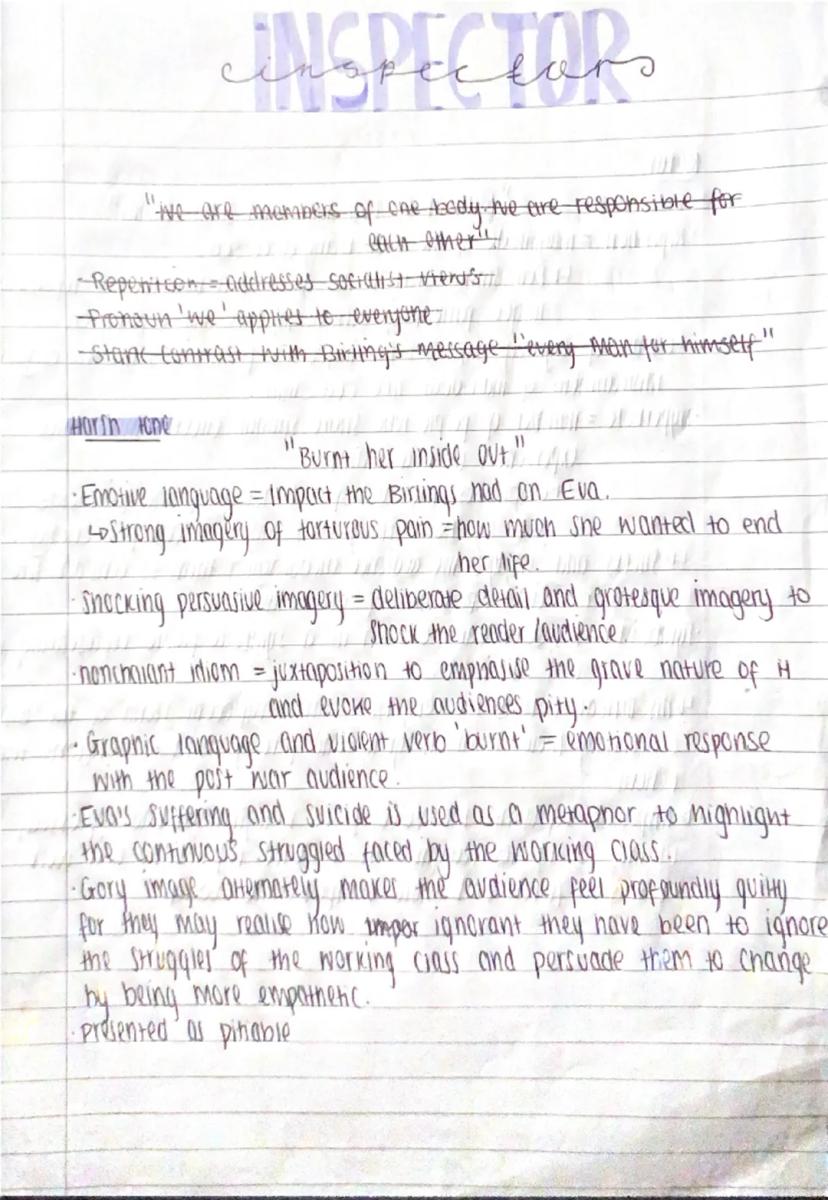 INSPECTOR
inspector
"We are members of one body. We are responsible for
each other"
- Repetition = addresses socialist views
- Pronoun 'we' applies to everyone
- Stark contrast with Birling's message "every man for himself"
Harsh tone
"Burnt her inside out"
· Emotive language = Impact the Birlings had on Eva.
↳ Strong imagery of torturous pain = how much she wanted to end
her life.
· Shocking persuasive imagery = deliberate detail and grotesque imagery to
shock the reader/audience.
· nonchalant idiom = juxtaposition to emphasise the grave nature of it
and evoke the audiences pity.
· Graphic language and violent verb 'burnt' = emotional response
with the post war audience.
· Eva's suffering and suicide is used as a metaphor to highlight
the continuous, struggled faced by the working class.
· Gory image alternately makes the audience feel profoundly guilty
for they may realise how ignorant they have been to ignore
the struggles of the working class and persuade them to change
by being more empathetic.
· presented as pitiable